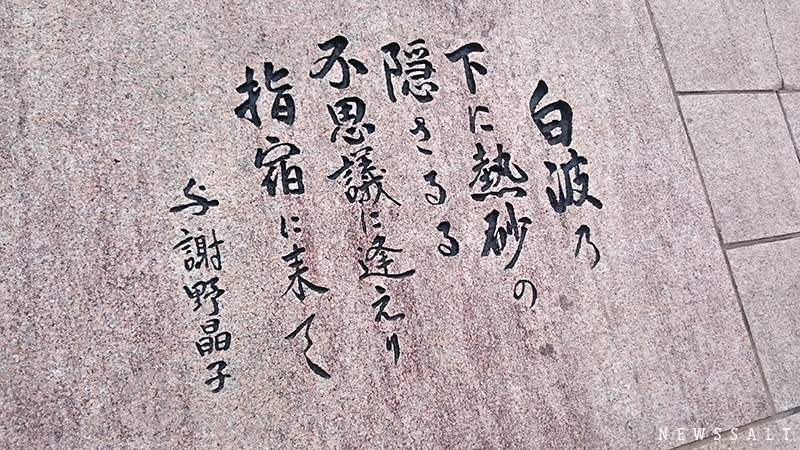 白波乃
下に熱砂の
隠さるる
不思議に逢えり
指宿に来て
与謝野晶子
NEWSSALT